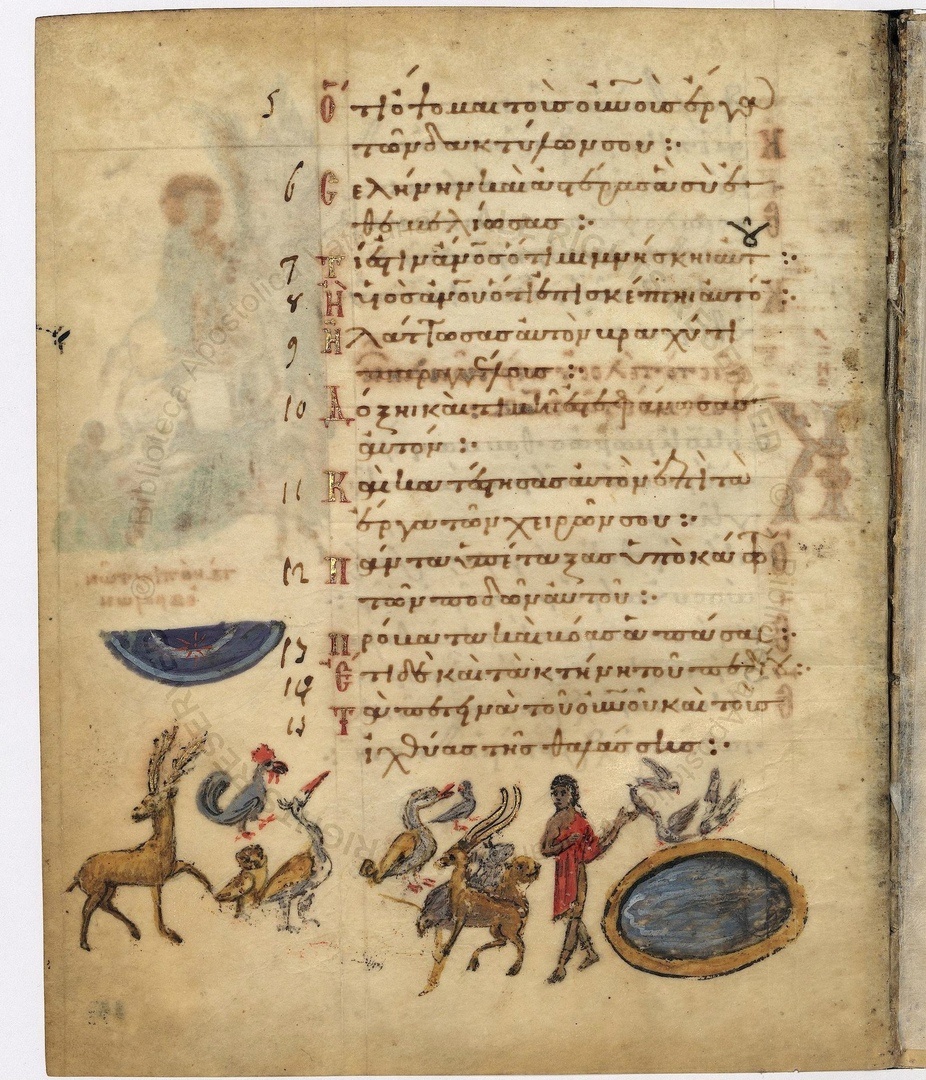 5 Ὅτι ὄψομαι τοὺς οὐνοὺς ἔργα
τῶν δακτύλων σου :·
6 Σελήνην καὶ ἀστέρας ἃ σὺ ἐ
θεμελίωσας :·
7 Τί ἐστιν ἄνος ὅτι μιμνήσκη αυτ :·
8 Ἢ υἱὸς ἀνου ὅτι ἐπισκέπτη αὐτό :·
9 Ἠλάττωσας αὐτὸν βραχύ τι
παρ ἀγγέλοις :·
10 Δόξη καὶ τιμῆ ἐστεφάνωσας
ἀυτόν :·
11 Κἀι κατέστησας ἀυτὸν ἐπὶ τὰ
ἔργα τῶν χειρῶν σου :·
12 Πάντα ὑπέταξας ὑποκάτω
τῶν ποδῶν ἀυτοῦ :·
13 Πρόβατα καὶ βόας ἁπάσας :·
14 Ἔτι δὲ καὶ τὰ κτήνη τοῦ πεδίου :·
15 Τὰ πετεινὰ τοῦ οὐνοῦ καὶ τοὺς
ἰχθύας τῆς θαλάσσης :·